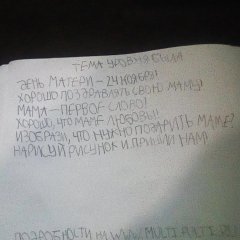 ТЕМА УРОВНЯ БЫЛА
ДЕНЬ МАТЕРИ – 24 НОЯБРЯ!
ХОРОШО ПОЗДРАВЛЯТЬ СВОЮ МАМУ!
МАМА – ПЕРВОЕ СЛОВО!
ХОРОШО, ЧТО МАМЕ ЛЮБОВЬ!!
ИЗОБРАЗИ, ЧТО НУЖНО ПОДАРИТЬ МАМЕ?
НАРИСУЙ РИСУНОК И ПРИШЛИ НАМ!
ПОДРОБНОСТИ НА WWW.MULTI-PULTI.RU